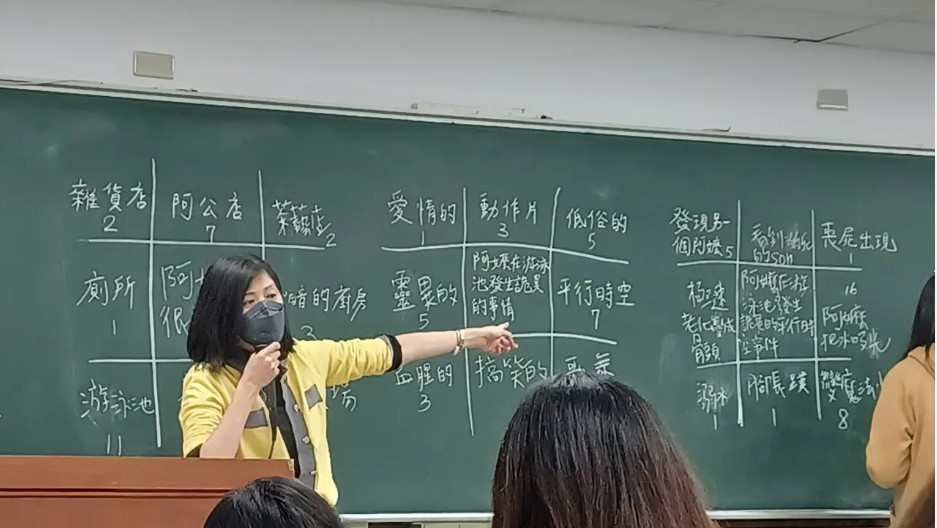 雜貨店
2
阿公店
7
2
廁所
1
阿
很
暗的廚房
3
游泳池
11
場
愛情的
1
動作片
3
低俗的
5
靈異的
5
阿嬤在游泳
池發生詭異
的事情
平行時空
7
血腥的
3
搞笑的
發現另一
個阿嬤5
看到
的son
喪屍出現
1
極速
老化變成
骨頭
阿嬤在游
泳池發生
詭異的平行時
空事件
16
阿嬤
把水喝光
溺水
1
1
8